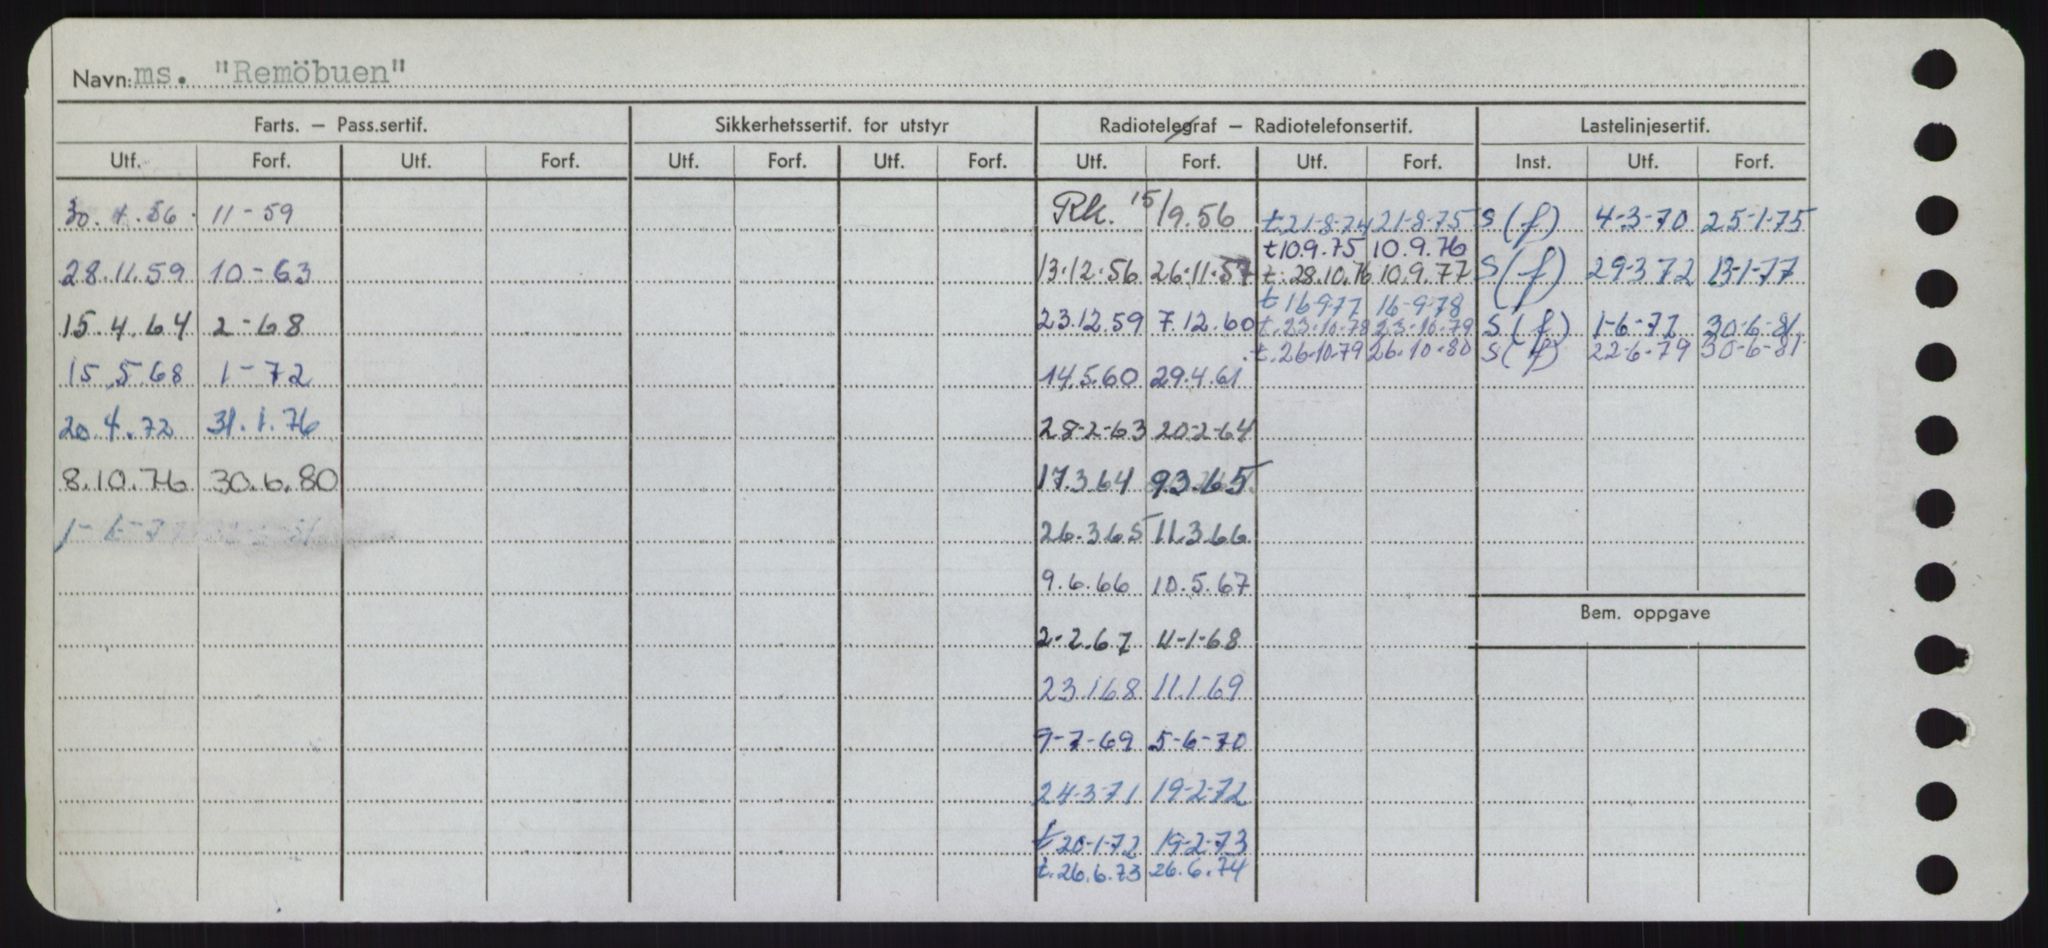 Navn: ms. "Remöbuen"
Farts. – Pass.sertif. Sikkerhetssertif. for utstyr Radiotelegraf – Radiotelefonsertif. Lastelinjesertif.
Utf. Forf. Utf. Forf. Utf. Forf. Utf. Forf. Utf. Forf. Utf. Forf. Inst. Utf. Forf.
30.4.56 11-59 Rk. 15/9.56 t.21-8-74 21-8-75 S(f) 4-3-70 25-1-75
t10.9.75 10.9.76
28.11.59 10-63 13.12.56 26.11.57 t.28.10.76 10.9.77 S(f) 29-3 72 13-1-77
t 16977 16-9-78
15.4.64 2-68 23.12.59 7.12.60 t.23.10.78 23-10.79 S(f) 1-6-77 30-6-81
t.26.10.79 26.10.80 S(f) 22-6.79 30-6-81
15.5.68 1-72 14.5.60 29.4.61
20.4.72 31.1.76 28-2-63 20-2-64
8.10.76 30.6.80 17.3.64 9.3.65
1-6-77 26.365 11.3.66
9.6.66 10.5.67
Bem. oppgave
2-2.67 4-1-68
23.1.68 11.1.69
9-7-69 5-6-70
24-3-71 19-2-72
t 20-1-72 19-2-73
t.26.6.73 26.6.74